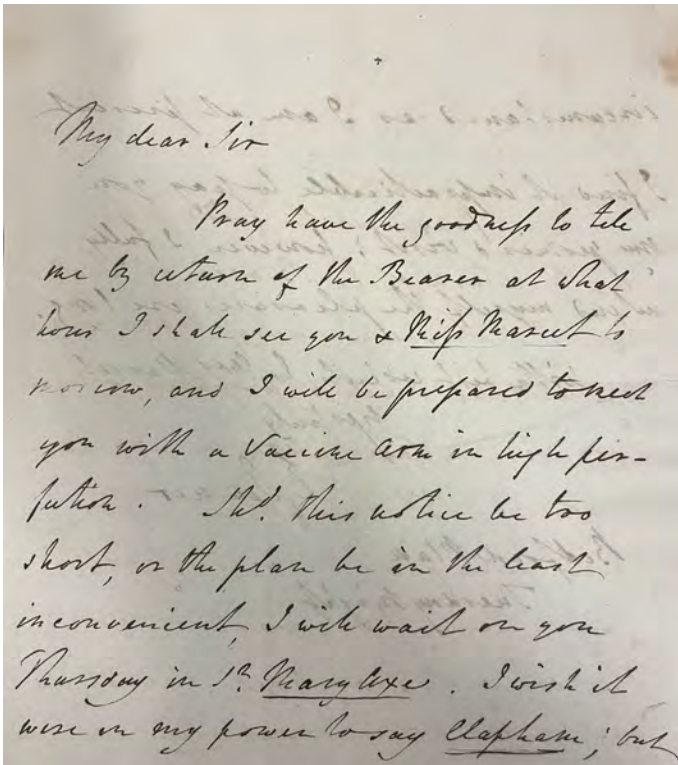 My dear Sir
Pray have the goodness to tell
me by return of the Bearer at what
hour I shall see you & Miss Marcet to
morrow, and I will be prepared to meet
you with a Vaccine Arm in high per-
fection. Shd. this notice be too
short, or the plan be in the least
inconvenient, I will wait on you
Thursday in St. Mary Axe. I wish it
were in my power to say Clapham; but